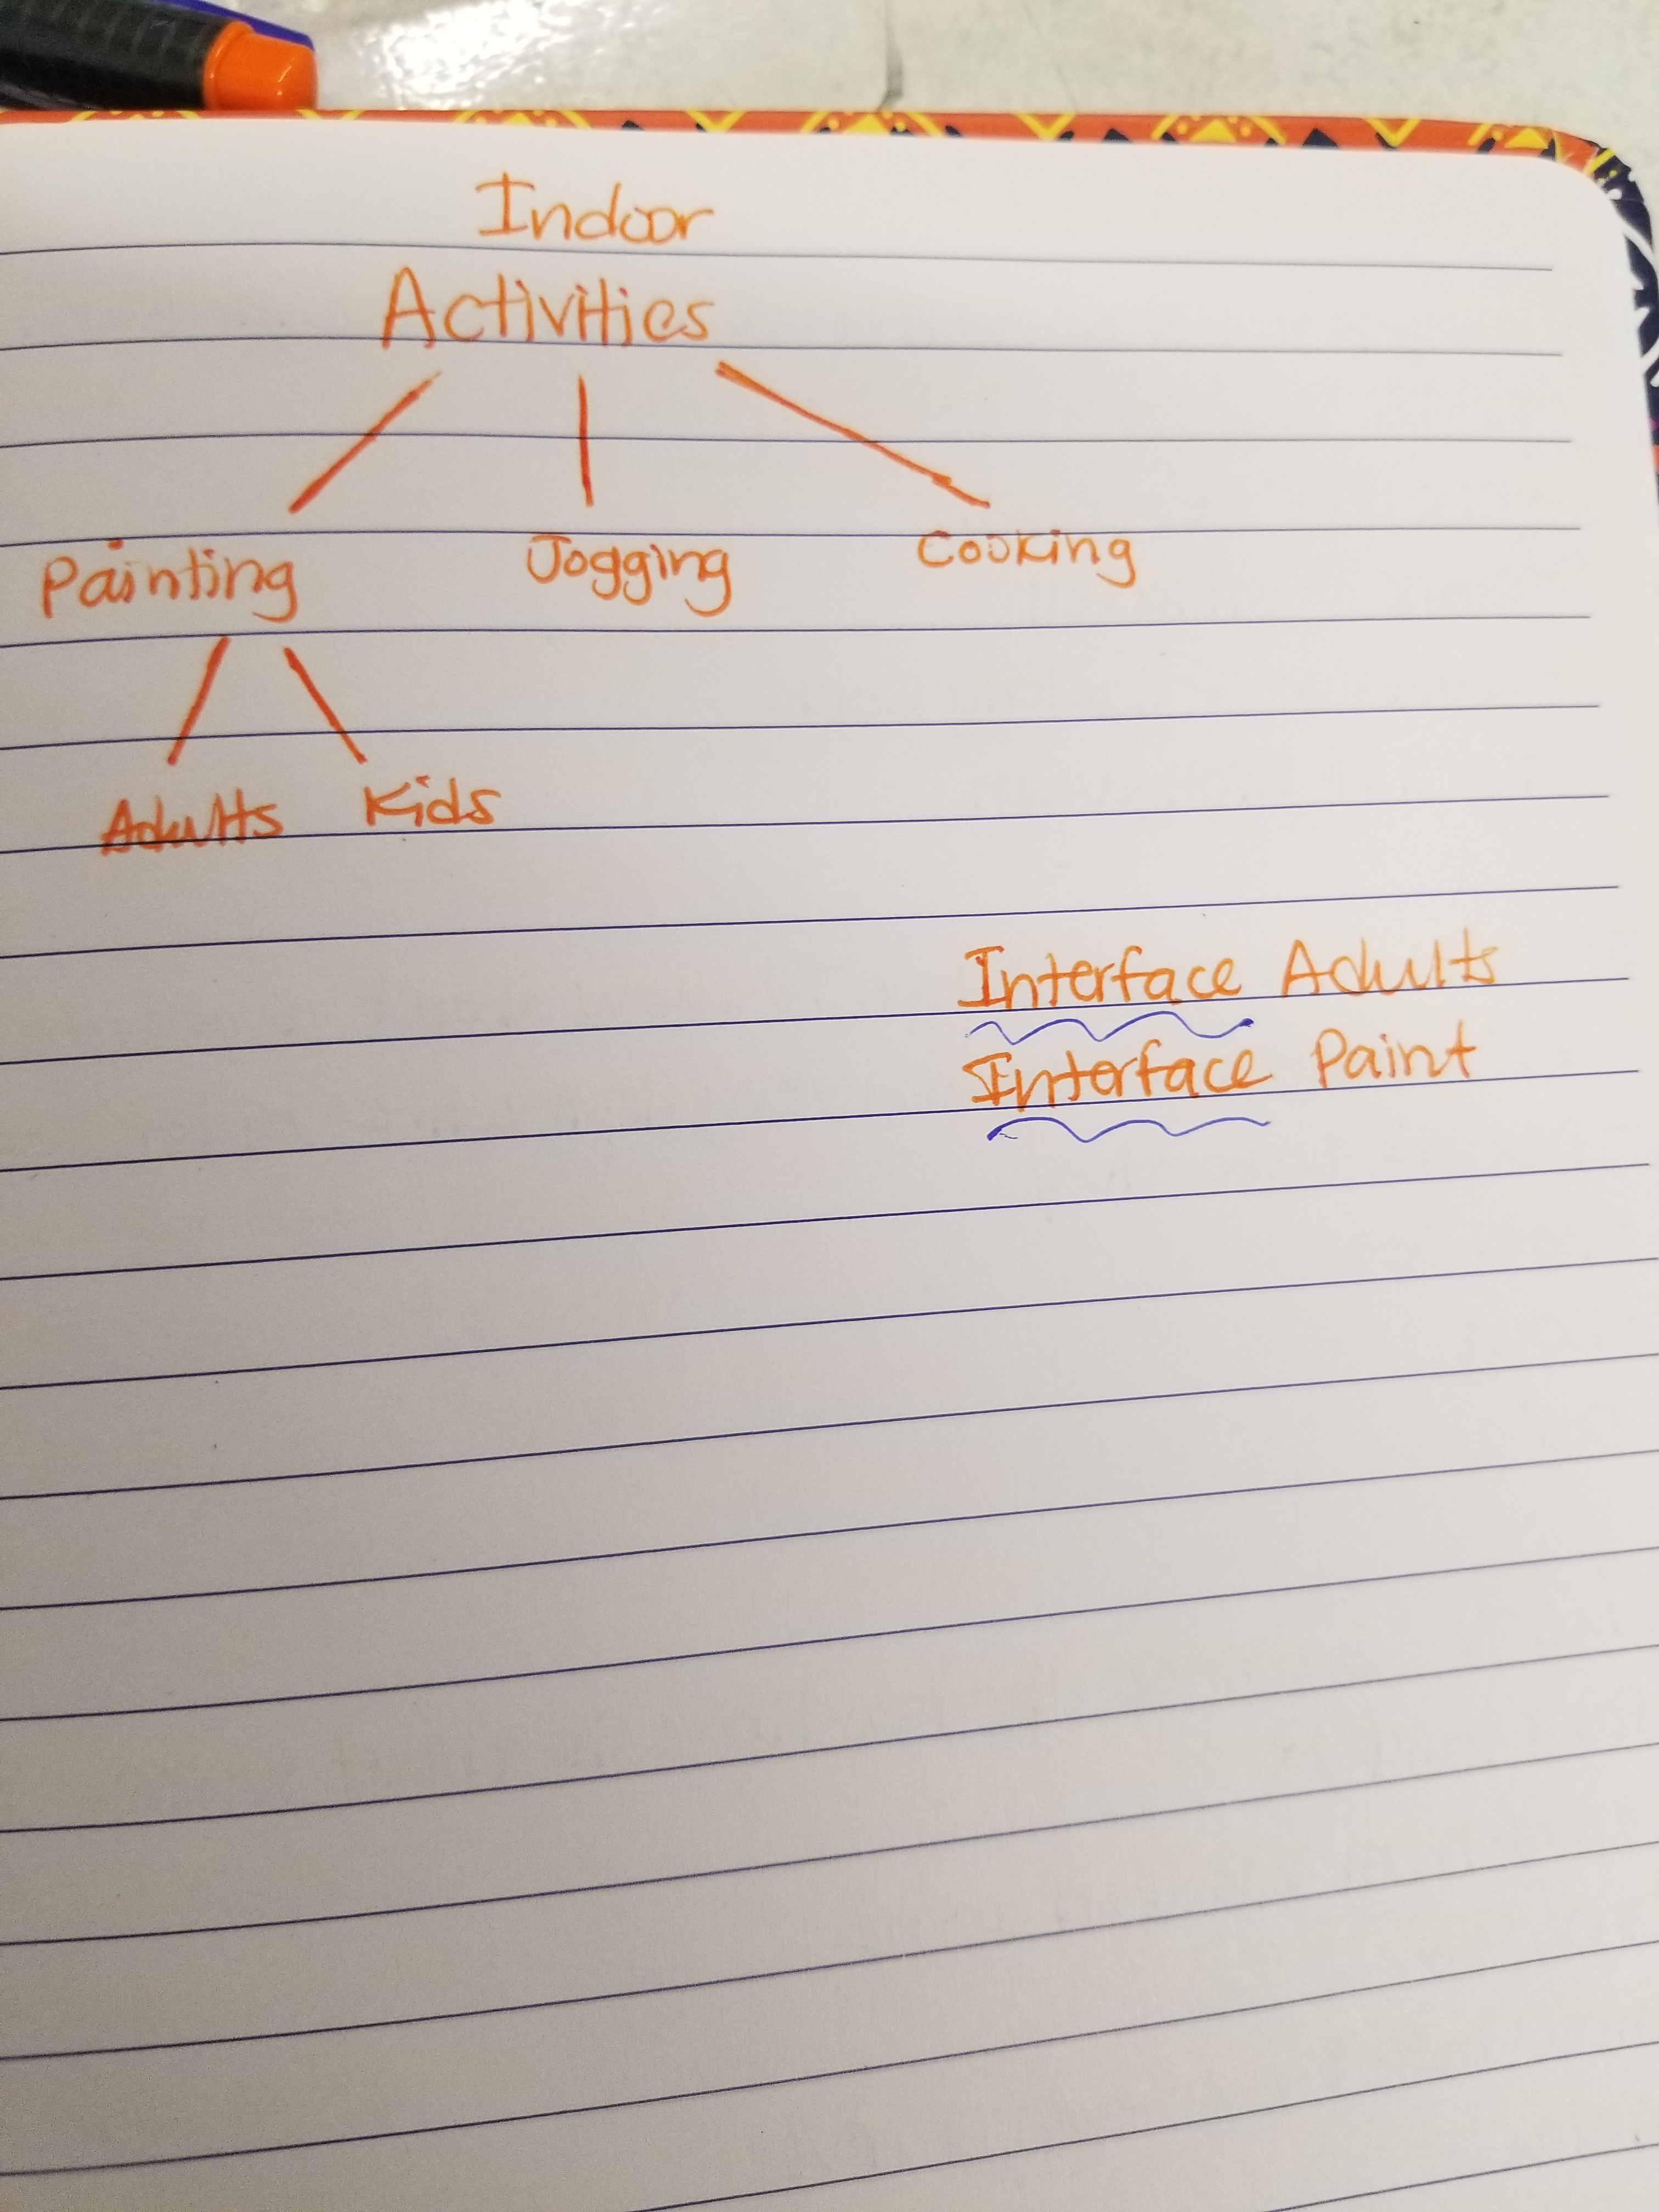 Indoor
Activities
Painting Jogging Cooking
Adults Kids
Interface Adults
Interface Paint